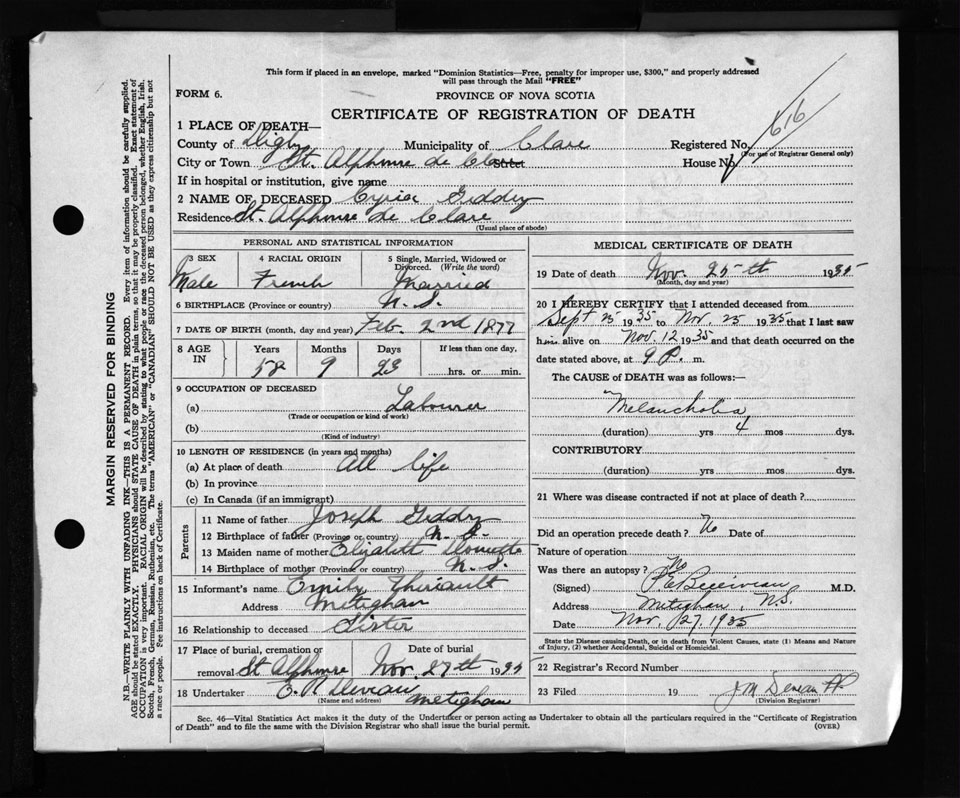 This form if placed in an envelope, marked "Dominion Statistics—Free, penalty for improper use, $300," and properly addressed
will pass through the Mail "FREE"
FORM 6.
PROVINCE OF NOVA SCOTIA
CERTIFICATE OF REGISTRATION OF DEATH
616
1 PLACE OF DEATH—
County of Digby Municipality of Clare Registered No.
(For use of Registrar General only)
City or Town St. Alphonse de Clare Street House No.
If in hospital or institution, give name
2 NAME OF DECEASED Cyriac Giddry
Residence St. Alphonse de Clare
(Usual place of abode)
PERSONAL AND STATISTICAL INFORMATION
3 SEX 4 RACIAL ORIGIN 5 Single, Married, Widowed or
Divorced. (Write the word)
Male French Married
6 BIRTHPLACE (Province or country) N. S.
7 DATE OF BIRTH (month, day and year) Feb. 2nd 1877
8 AGE IN Years Months Days If less than one day,
58 9 23 hrs. or min.
9 OCCUPATION OF DECEASED
(a) Labourer
(Trade or occupation or kind of work)
(b)
(Kind of industry)
10 LENGTH OF RESIDENCE (in years and months)
(a) At place of death All life
(b) In province
(c) In Canada (if an immigrant)
Parents
11 Name of father Joseph Giddry
12 Birthplace of father (Province or country) N. S.
13 Maiden name of mother Elizabeth Doucette
14 Birthplace of mother (Province or country) N. S.
15 Informant's name Emily Thériault
Address Meteghan
16 Relationship to deceased Sister
17 Place of burial, cremation or Date of burial
removal St Alphonse Nov. 27th 1935
18 Undertaker E. R. Meteghan
(Name and address)
MEDICAL CERTIFICATE OF DEATH
19 Date of death Nov. 25th 1935
(Month, day and year)
20 I HEREBY CERTIFY that I attended deceased from
Sept 25 1935 to Nov. 25 1935 that I last saw
him alive on Nov. 12 1935 and that death occurred on the
date stated above, at 9 P. m.
The CAUSE of DEATH was as follows:—
Melancholia
(duration) yrs 4 mos dys.
CONTRIBUTORY
(duration) yrs mos dys.
21 Where was disease contracted if not at place of death?
Did an operation precede death? No Date of
Nature of operation
Was there an autopsy? No
(Signed) M.D.
Address Meteghan, N.S.
Date Nov. 27, 1935
State the Disease causing Death, or in death from Violent Causes, state (1) Means and Nature
of Injury, (2) whether Accidental, Suicidal or Homicidal.
22 Registrar's Record Number
23 Filed 19 J M
(Division Registrar)
Sec. 46—Vital Statistics Act makes it the duty of the Undertaker or person acting as Undertaker to obtain all the particulars required in the "Certificate of Registration
of Death" and to file the same with the Division Registrar who shall issue the burial permit. (OVER)
MARGIN RESERVED FOR BINDING
N.B.—WRITE PLAINLY WITH UNFADING INK—THIS IS A PERMANENT RECORD. Every item of information should be carefully supplied.
AGE should be stated EXACTLY. PHYSICIANS should STATE CAUSE OF DEATH in plain terms, so that it may be properly classified. Exact statement of
OCCUPATION is very important. RACIAL ORIGIN will be described by stating to what people or race the deceased person belonged, whether English, Irish,
Scotch, French, German, Russian, Ruthenian, etc. The terms "AMERICAN" or "CANADIAN" SHOULD NOT BE USED as they express citizenship but not
a race or people. Fee instructions on back of Certificate.